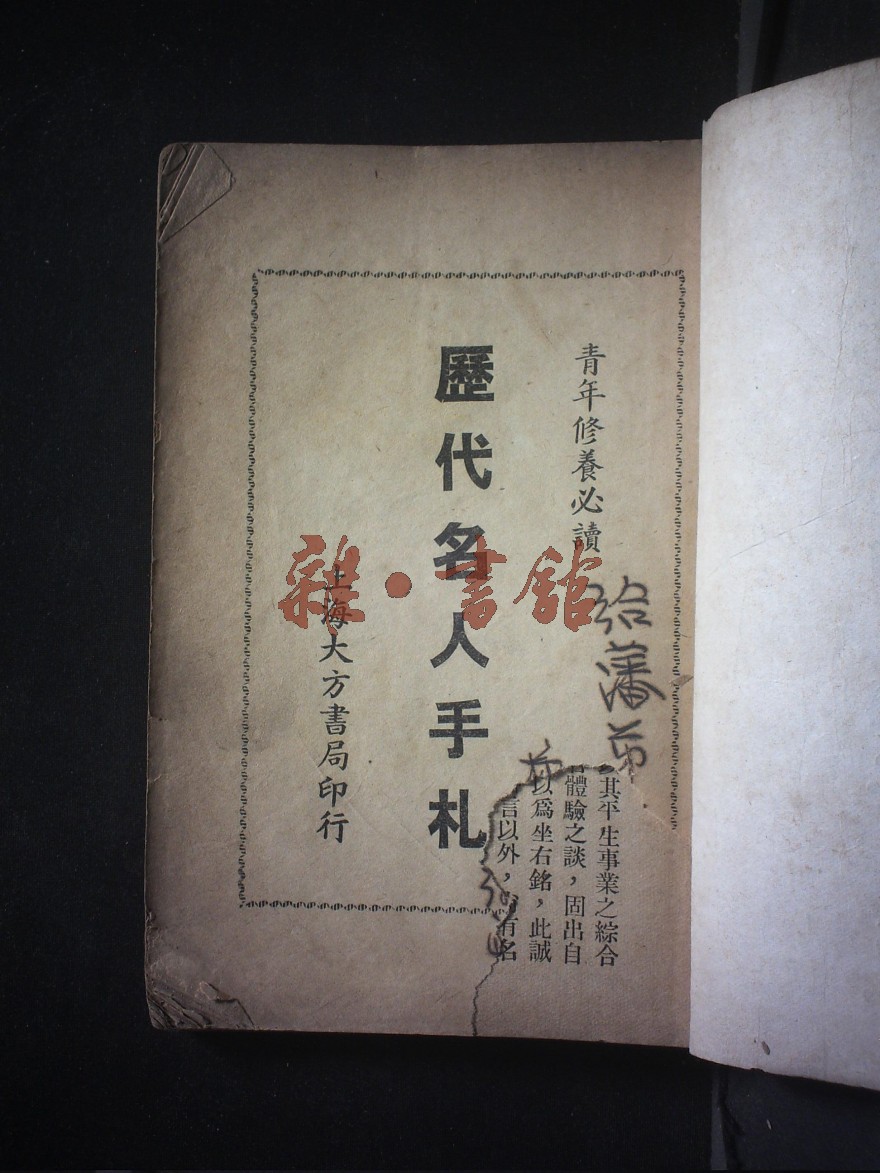 青年修養必讀
歷代名人手札
上海大方書局印行
雜·書館
其平生事業之綜合
體驗之談，固出自
以爲坐右銘，此誠
言以外，有名